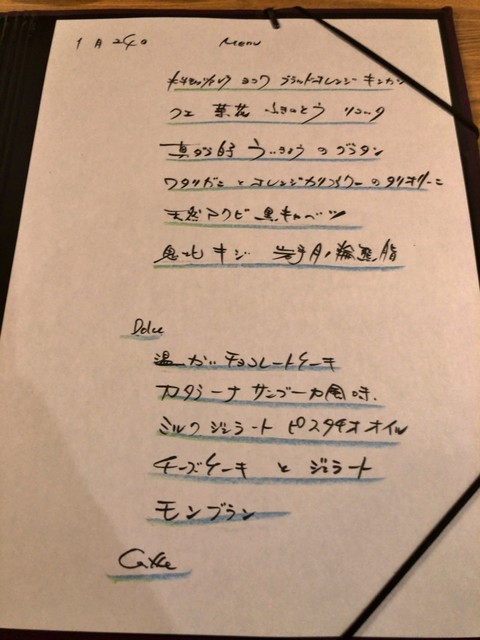 1月24日 Menu
ブラッドオレンジ キンカン
菜花 ふきのとう リコッタ
真だら白子 ういきょうのグラタン
ワタリガニとオレンジカリフラワーのタリオリーニ
天然クビ 黒キャベツ
鬼北キジ 岩手月ノ輪熊脂
Dolce
温かいチョコレートケーキ
カタラーナ サンブーカ風味
ミルクジェラート ピスタチオオイル
チーズケーキとジェラート
モンブラン
Caffe